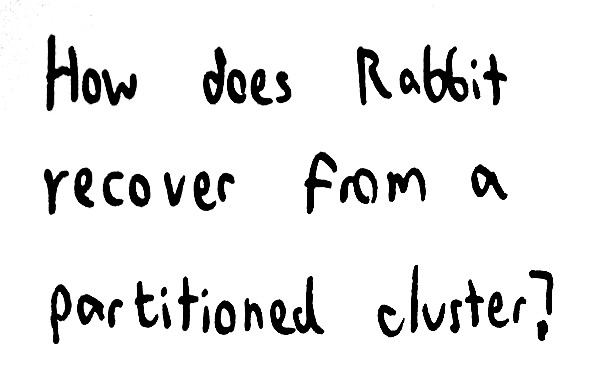 How does Rabbit
recover from a
partitioned cluster?